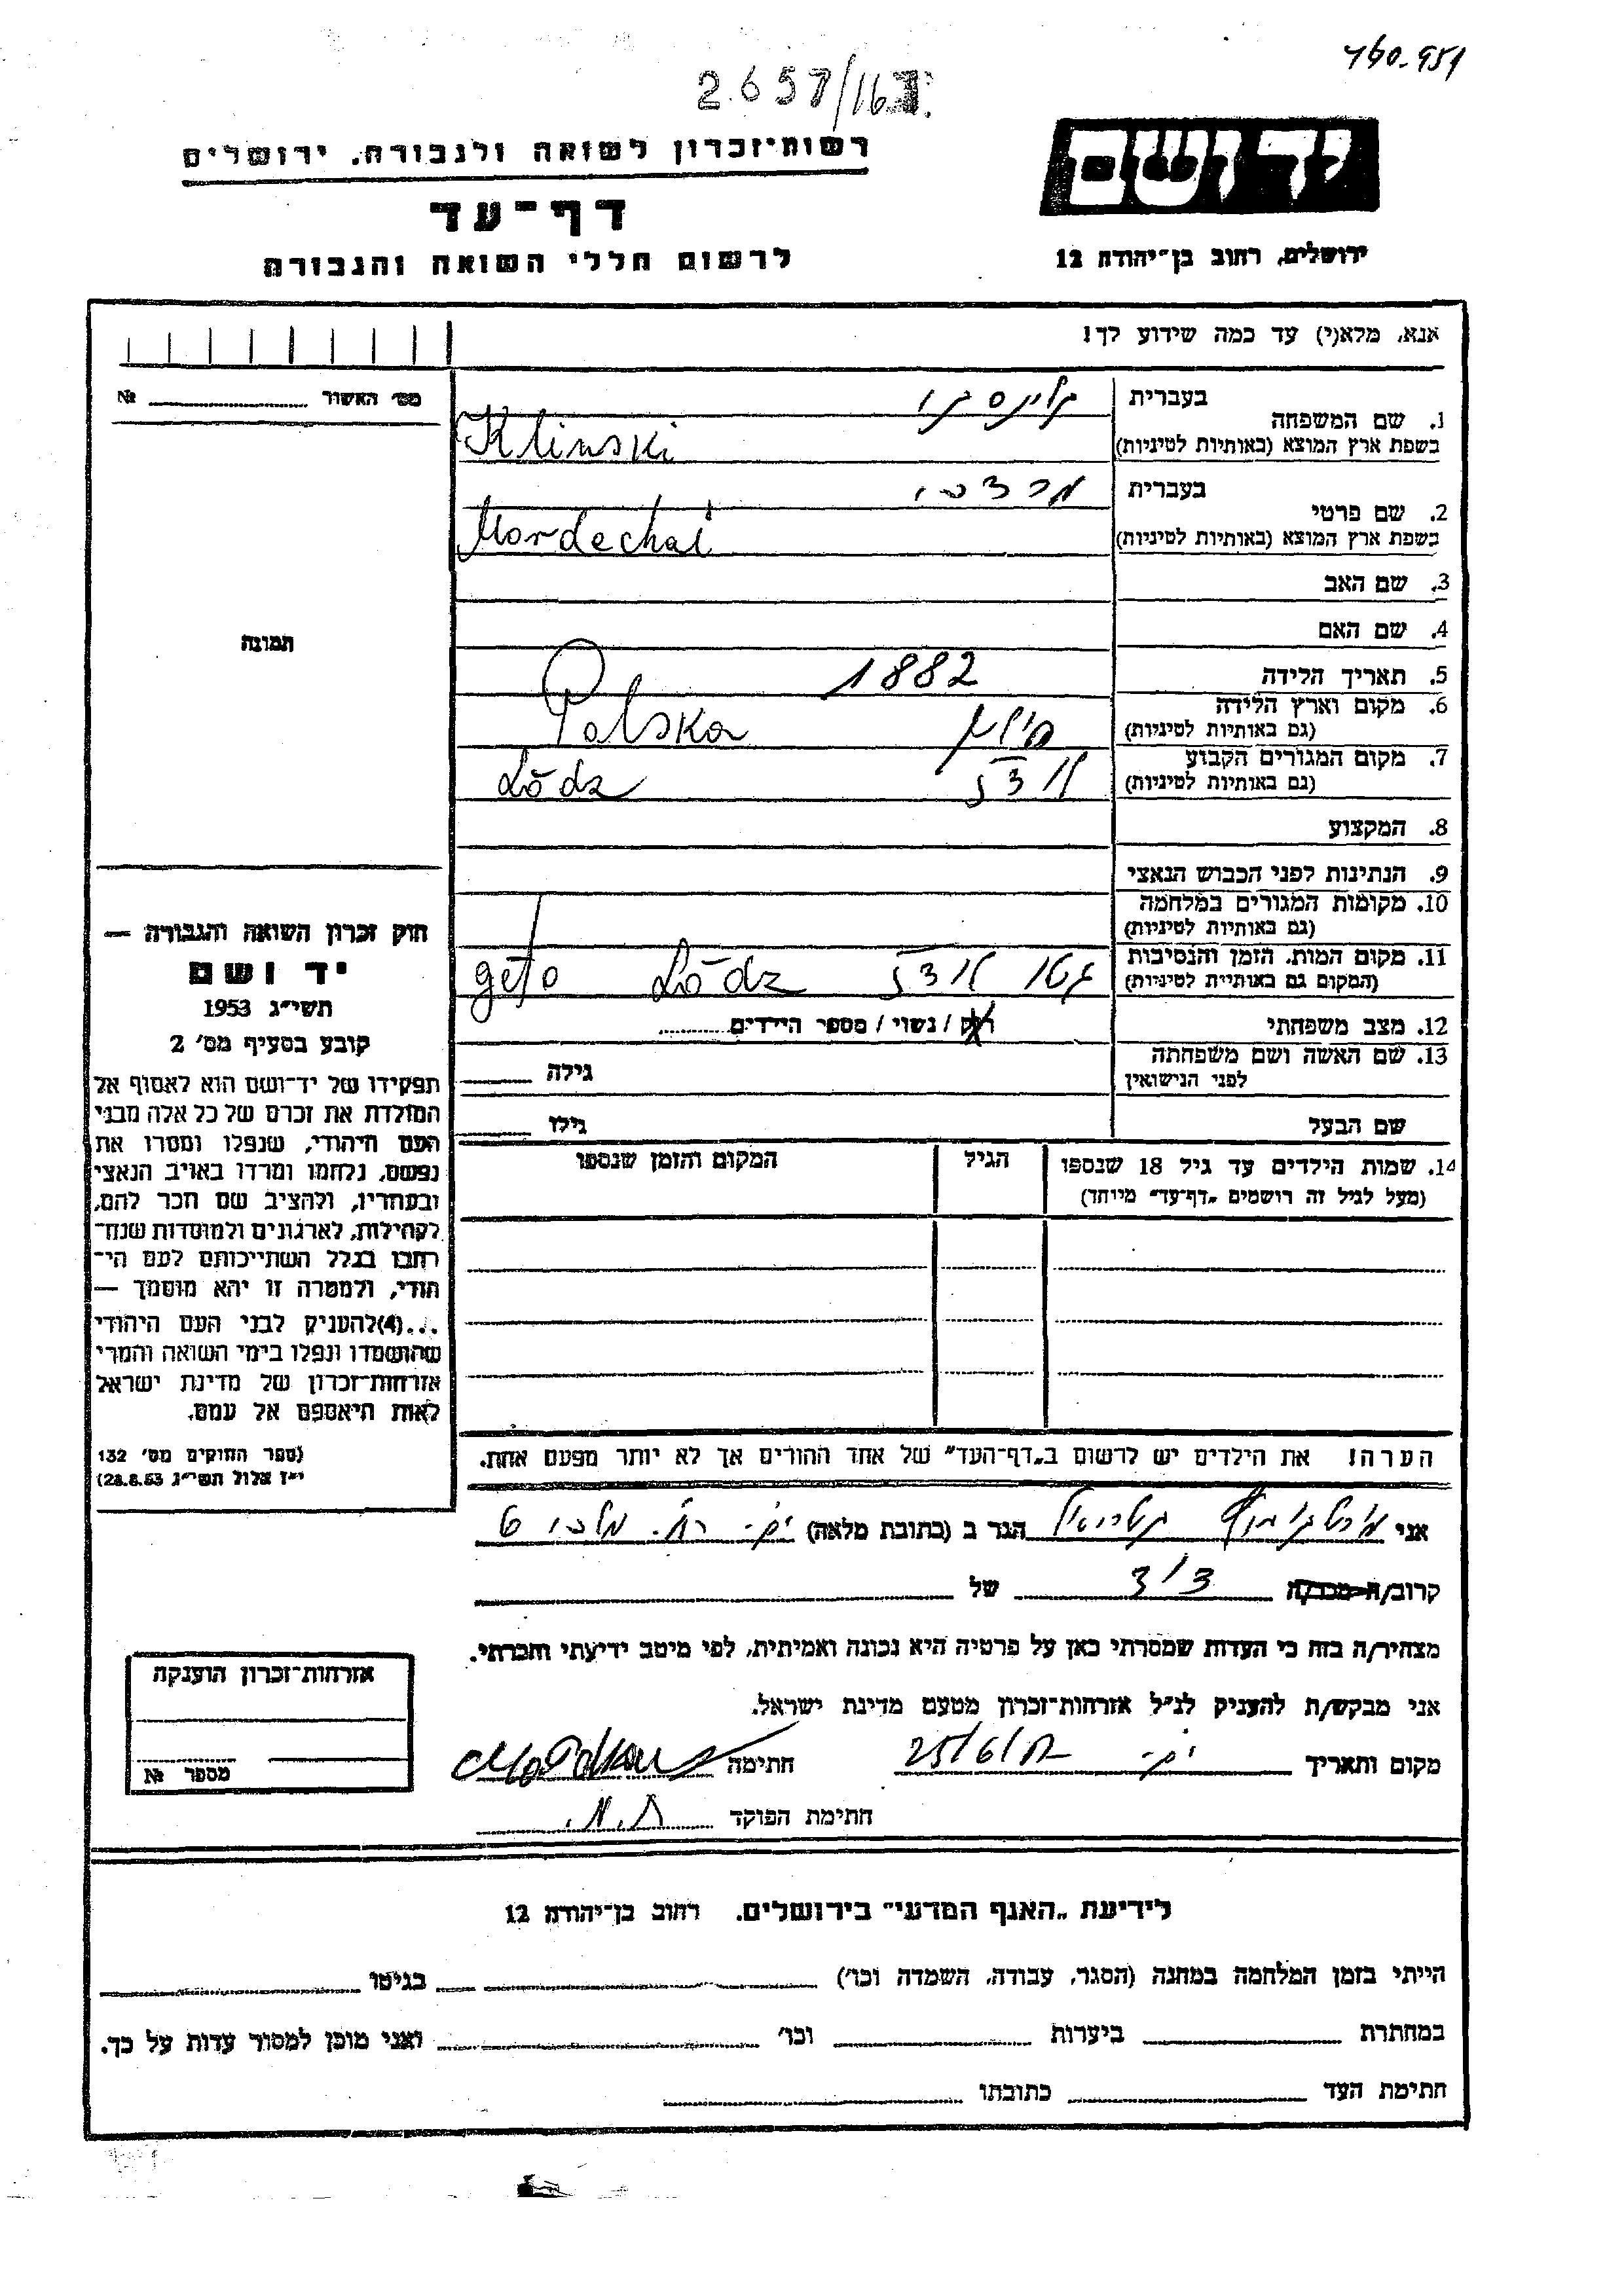 2657/16
רשות־זכרון לשואה ולגבורה, ירושלים
יד ושם
דף־עד
לרשום חללי השואה והגבורה
ירושלים, רחוב בן־יהודה 12
אנא, מלא(י) עד כמה שידוע לך!
מס׳ האשור № 
1. שם המשפחה
בעברית קלינסקי
בשפת ארץ המוצא (באותיות לטיניות) Klinski
2. שם פרטי
בעברית מרדכי
בשפת ארץ המוצא (באותיות לטיניות) Mordechai
3. שם האב
4. שם האם
תמונה
5. תאריך הלידה 1882
6. מקום וארץ הלידה
(גם באותיות לטיניות) פולין Polska
7. מקום המגורים הקבוע
(גם באותיות לטיניות) לודז Lódz
8. המקצוע
9. הנתינות לפני הכבוש הנאצי
10. מקומות המגורים במלחמה
(גם באותיות לטיניות)
11. מקום המות, הזמן והנסיבות
(המקום גם באותיות לטיניות) גטו לודז Lódz geto
12. מצב משפחתי רווק / נשוי / מספר הילדים
13. שם האשה ושם משפחתה
לפני הנישואין גילה
שם הבעל גילו
14. שמות הילדים עד גיל 18 שנספו הגיל המקום והזמן שנספו
(מעל לגיל זה רושמים „דף־עד״ מיוחד)
חוק זכרון השואה והגבורה —
יד ושם
תשי״ג 1953
קובע בסעיף מס׳ 2
תפקידו של יד־ושם הוא לאסוף אל
המולדת את זכרם של כל אלה מבני
העם היהודי, שנפלו ומסרו את
נפשם, נלחמו ומרדו באויב הנאצי
ובעוזריו, ולהציב שם וזכר להם,
לקהילות, לארגונים ולמוסדות שנח־
רבו בגלל השתייכותם לעם הי־
הודי, ולמטרה זו יהא מוסמך —
...(4)להעניק לבני העם היהודי
שהושמדו ונפלו בימי השואה והמרי
אזרחות־זכרון של מדינת ישראל
לאות היאספם אל עמם.
(ספר החוקים מס׳ 132
י״ז אלול תשי״ג 28.8.53)
הערה! את הילדים יש לרשום ב„דף־העד״ של אחד ההורים אך לא יותר מפעם אחת.
אני הגר ב (כתובת מלאה)
קרוב/ה מכר/ה של
מצהיר/ה בזה כי העדות שמסרתי כאן על פרטיה היא נכונה ואמיתית, לפי מיטב ידיעתי והכרתי.
אני מבקש/ת להעניק לנ״ל אזרחות־זכרון מטעם מדינת ישראל.
מקום ותאריך 25/6/ חתימה
חתימת הפוקד
אזרחות־זכרון הוענקה
מספר №
לידיעת „האגף המדעי״ בירושלים, רחוב בן־יהודה 12
הייתי בזמן המלחמה במחנה (הסגר, עבודה, השמדה וכו׳) בגיטו
במחתרת ביערות וכו׳ ואני מוכן למסור עדות על כך.
חתימת העד כתובתו